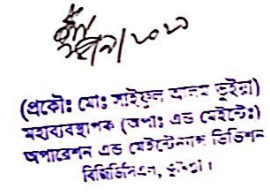 (প্রকৌঃ মোঃ সাইফুল আলম ভূইয়া)
মহাব্যবস্থাপক (অপাঃ এন্ড মেইন্টেঃ)
অপারেশন এন্ড মেইন্টেন্যান্স ডিভিশন
বিজিডিসিএল, কুমিল্লা।